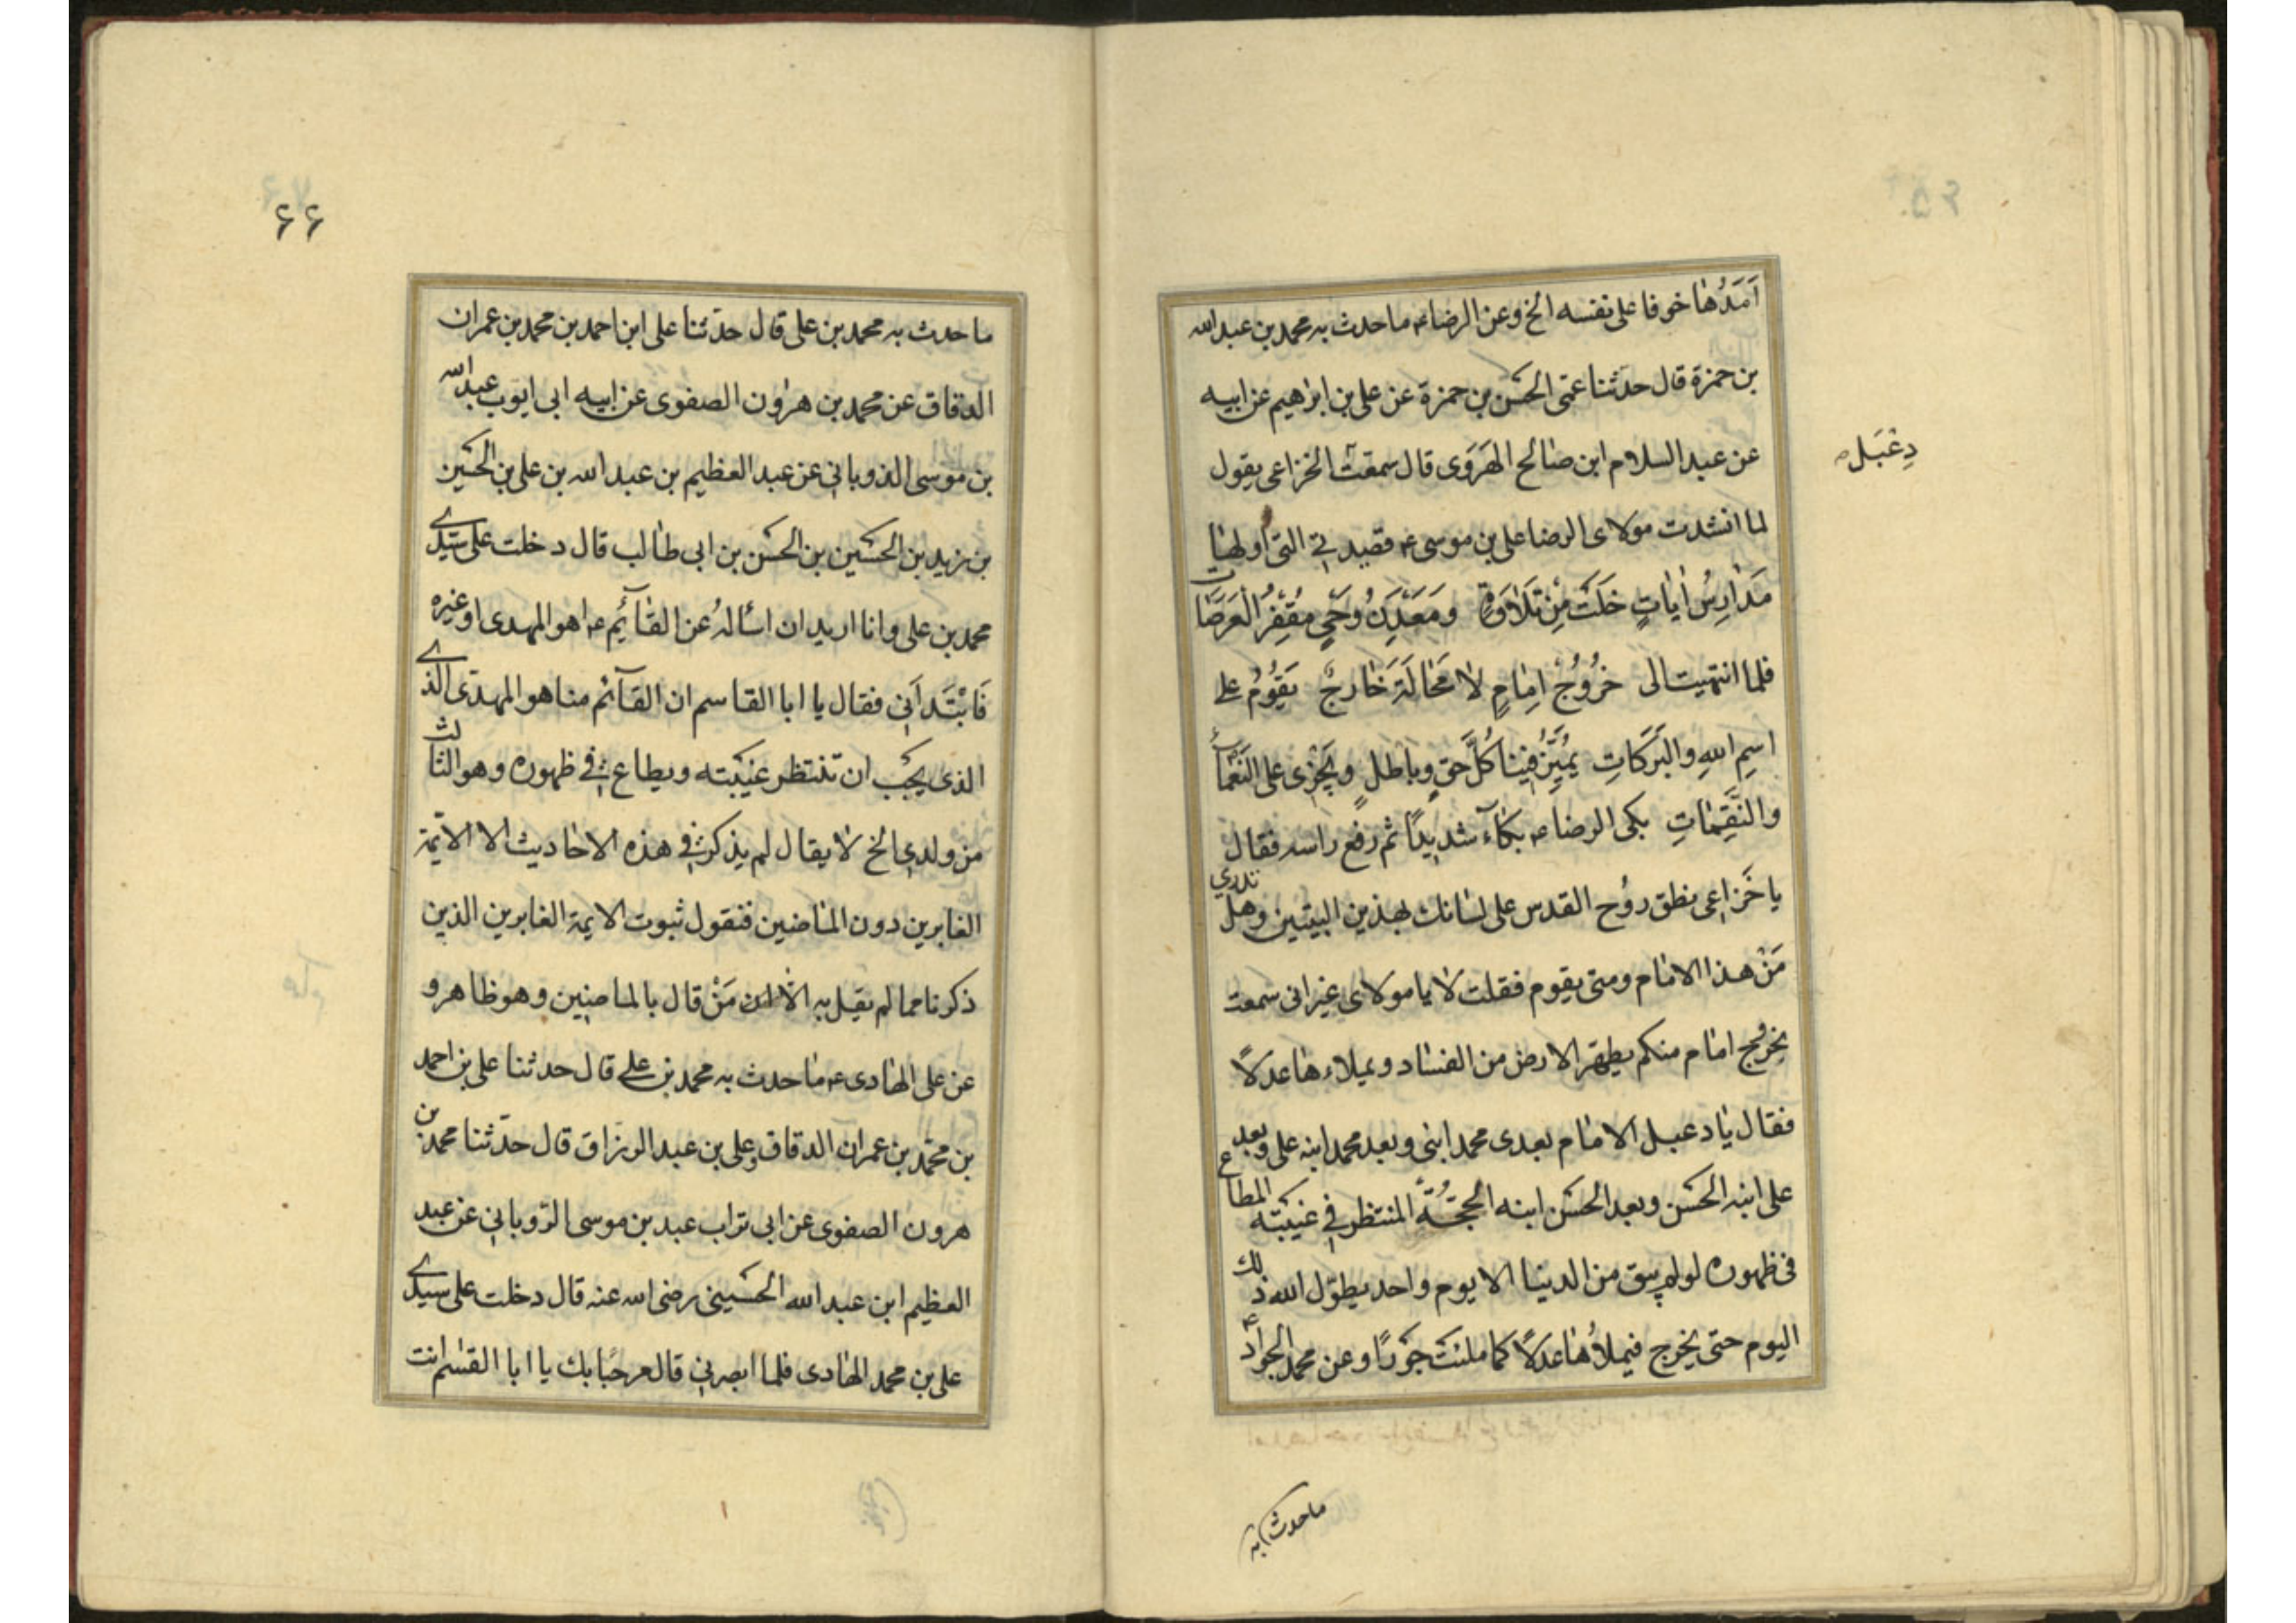 اَمَدُها خوفا على نفسه الخ وعن الرضاء ع ما حدث به محمد بن عبد الله
بن حمزة قال حدثنا عمّى الحسن بن حمزة عن على بن ابرٰهيم عن ابيه
عن عبد السلام ابن صٰالح الهَرَوى قال سمعت الخزاعى يقول
دِعْبَل
لما انشدت مولاى الرضا على بن موسى ع قصيدتى التى اولهٰا
مَدٰارِسُ اٰيٰاتٍ خَلَتْ مِنْ تَلٰاوَةٍ ومَعْدِنُ وَحْىٍ مُقْفِرُ الْعَرَصٰات
فلما انتهيت الى خُرُوجُ اِمٰامٍ لاٰ مَحٰالَةَ خٰارِجٌ يَقُومُ على
اسمِ اللهِ والْبَرَكاتِ يُمَيِّزُ فِينٰا كُلَّ حَقٍ وبٰاطلٍ ويَجْزى على النَعْمآء
والنَّقِمٰاتِ بكى الرضا ع بكآء شديدًا ثم رفع راسه فقال
يا خَزاعى نطق روُح القدس على لسٰانك بهذين البيتين وهل تدري
مَنْ هذا الامٰام ومتى يقوم فقلت لا يا مولاى غير انى سمعت
بخروج امٰام منكم يطهر الارض من الفسٰاد ويملاءهٰا عدلاً
فقال يٰا دعبل الامٰام بعدى محمد ابنى وبعد محمد ابنه على وبعد
على ابنه الحسَن وبعد الحسَن ابنه الحجّةُ المنتظر فى غيبَته المطاع
فى ظهوره لو لم يبق من الدنيا الا يوم واحد يطوّل الله ذلك
اليوم حتى يخرج فيملاُهٰا عدلًا كما ملئت جَورًا وعن محمد الجواد ع
ما حدث به
۶۶
ما حدث به محمد بن على قال حدّثنا على ابن احمد بن محمد بن عمران
الدقاق عن محمد بن هرٰون الصفوى عن ابيه ابى ايوب عبد الله
بن موسى الذوبانى عن عبد العظيم بن عبد الله بن على بن الحسَين
بن زيد بن الحسَين بن الحسَن بن ابى طالب قال دخلت على سيّدے
محمد بن على وانا اريد ان اسألهُ عن القآئِم ع اهو المهدى او غيره
فَابْتَدَأَنى فقال يا ابا القاسم ان القآئم منا هو المهدى الذے
الذى يجب ان تنتظر غيبَته ويطاع فى ظهوره وهو الثالث
من ولدى الخ لا يقال لم يذكر فى هذه الاحاديث الا الائمّة
الغابرين دون المٰاضين فنقول ثبوت الايمة الغابرين الذين
ذكرنا مما لم يقل به الا من مَنْ قال بالماضين وهو ظاهر و
عن على الهٰادى ع مٰا حدث به محمد بن على قال حدثنا على بن احمد
بن محمّد بن عمران الدقاق وعلى بن عبد الرزاق قال حدّثنا محمد بن
هرون الصفوى عن ابى تراب عبد بن موسى الرّوبانى عن عبد
العظيم ابن عبد الله الحسَينى رضى الله عنه قال دخلت على سيدے
على بن محمد الهٰادى فلما ابصرنى قال مرحبًا بك يا ابا القسٰم انت